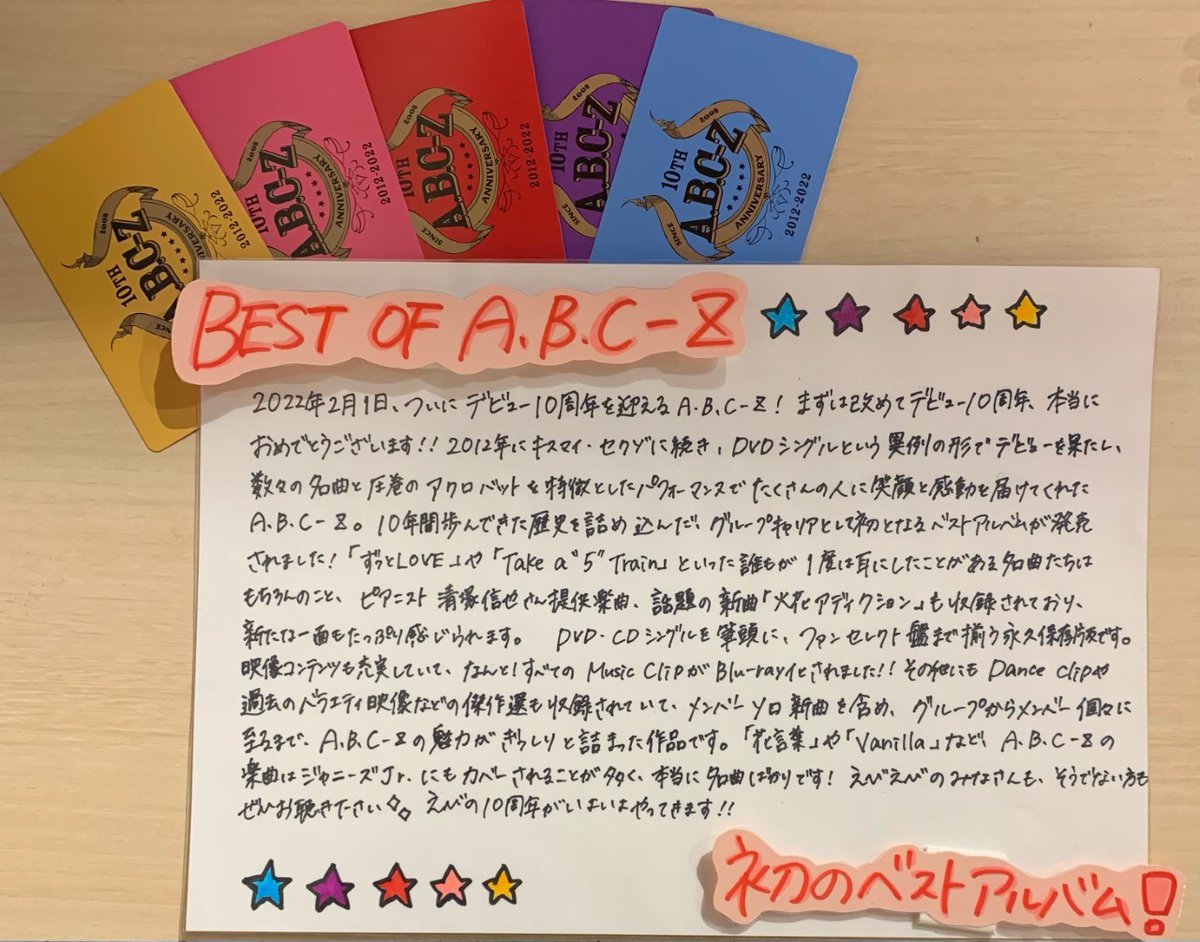 SINCE 2008
10TH
A.B.C-Z
ANNIVERSARY
2012-2022
SINCE 2008
10TH
A.B.C-Z
ANNIVERSARY
2012-2022
SINCE 2008
10TH
A.B.C-Z
ANNIVERSARY
2012-2022
SINCE 2008
10TH
A.B.C-Z
SINCE 2008
10TH
A.B.C-Z
ANNIVERSARY
2012-2022
BEST OF A.B.C-Z
2022年2月1日、ついにデビュー10周年を迎えるA.B.C-Z! まずは改めてデビュー10周年、本当に
おめでとうございます!! 2012年にキスマイ・セクゾに続き、DVDシングルという異例の形でデビューを果たし、
数々の名曲と圧巻のアクロバットを特徴としたパフォーマンスでたくさんの人に笑顔と感動を届けてくれた
A.B.C-Z。10年間歩んできた歴史を詰め込んだ、グループキャリアとして初となるベストアルバムが発売
されました!「ずっとLOVE」や「Take a "5" Train」といった誰もが1度は耳にしたことがある名曲たちは
もちろんのこと、ピアニスト清塚信也さん提供楽曲、話題の新曲「火花アディクション」も収録されており、
新たな一面もたっぷり感じられます。 DVD・CDシングルを筆頭に、ファンセレクト盤まで揃う永久保存版です。
映像コンテンツも充実していて、なんと!すべてのMusic ClipがBlu-ray化されました!! その他にもDance Clipや
過去のバラエティ映像などの傑作選も収録されていて、メンバーソロ新曲を含め、グループからメンバー個々に
至るまで、A.B.C-Zの魅力がぎっしりと詰まった作品です。「花言葉」や「Vanilla」など、A.B.C-Zの
楽曲はジャニーズJr.にもカバーされることが多く、本当に名曲ばかりです! えびえびのみなさんも、そうでない方も
ぜひお聴きください えびの10周年がいよいよやってきます!!
初のベストアルバム!